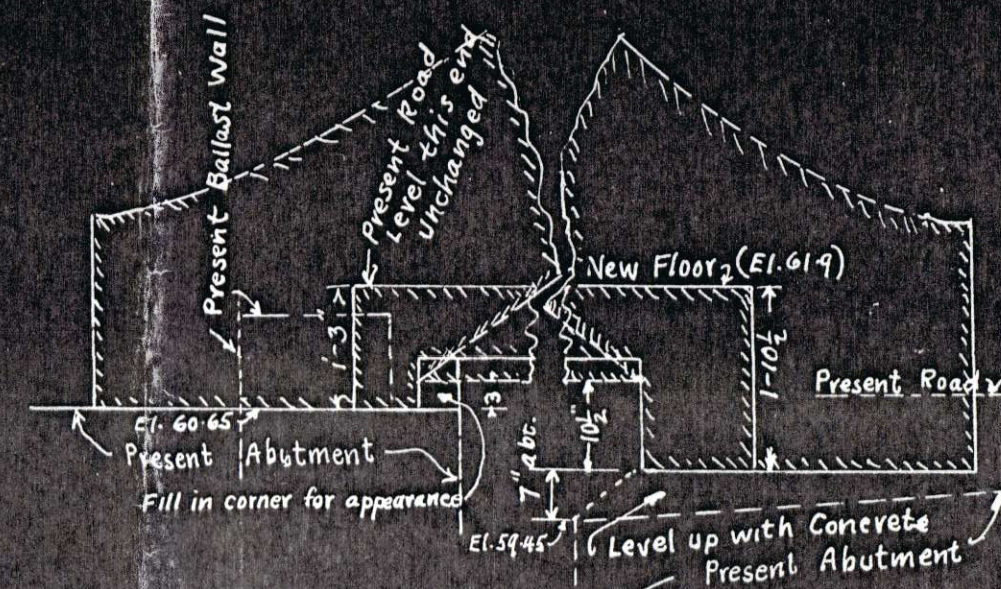 Present Ballast Wall
Present Road
Level this end
Unchanged
New Floor (El. 61.9)
1-3
1-10½
Present Road
3
10½"
7" abt.
El. 60.65
Present Abutment
Fill in corner for appearance
El. 59.45
Level up with Concrete
Present Abutment